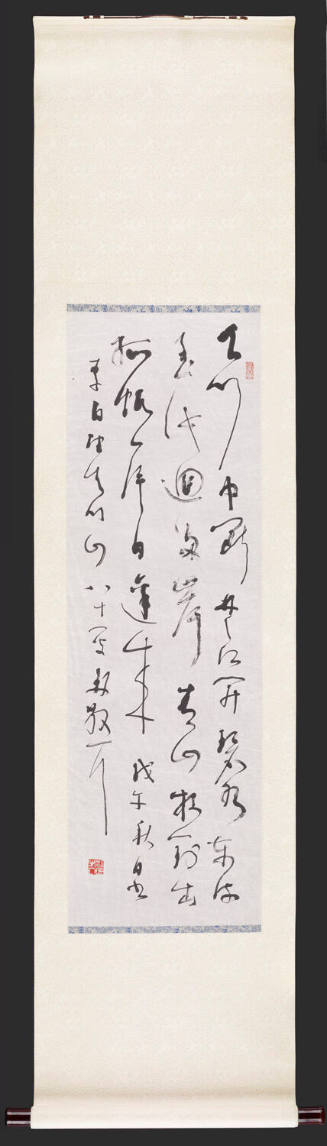 天門中斷楚江開碧水東流
至此迴兩岸青山相對出
孤帆一片日邊來 戊午秋日書
李白望天門山 八十一叟林散耳